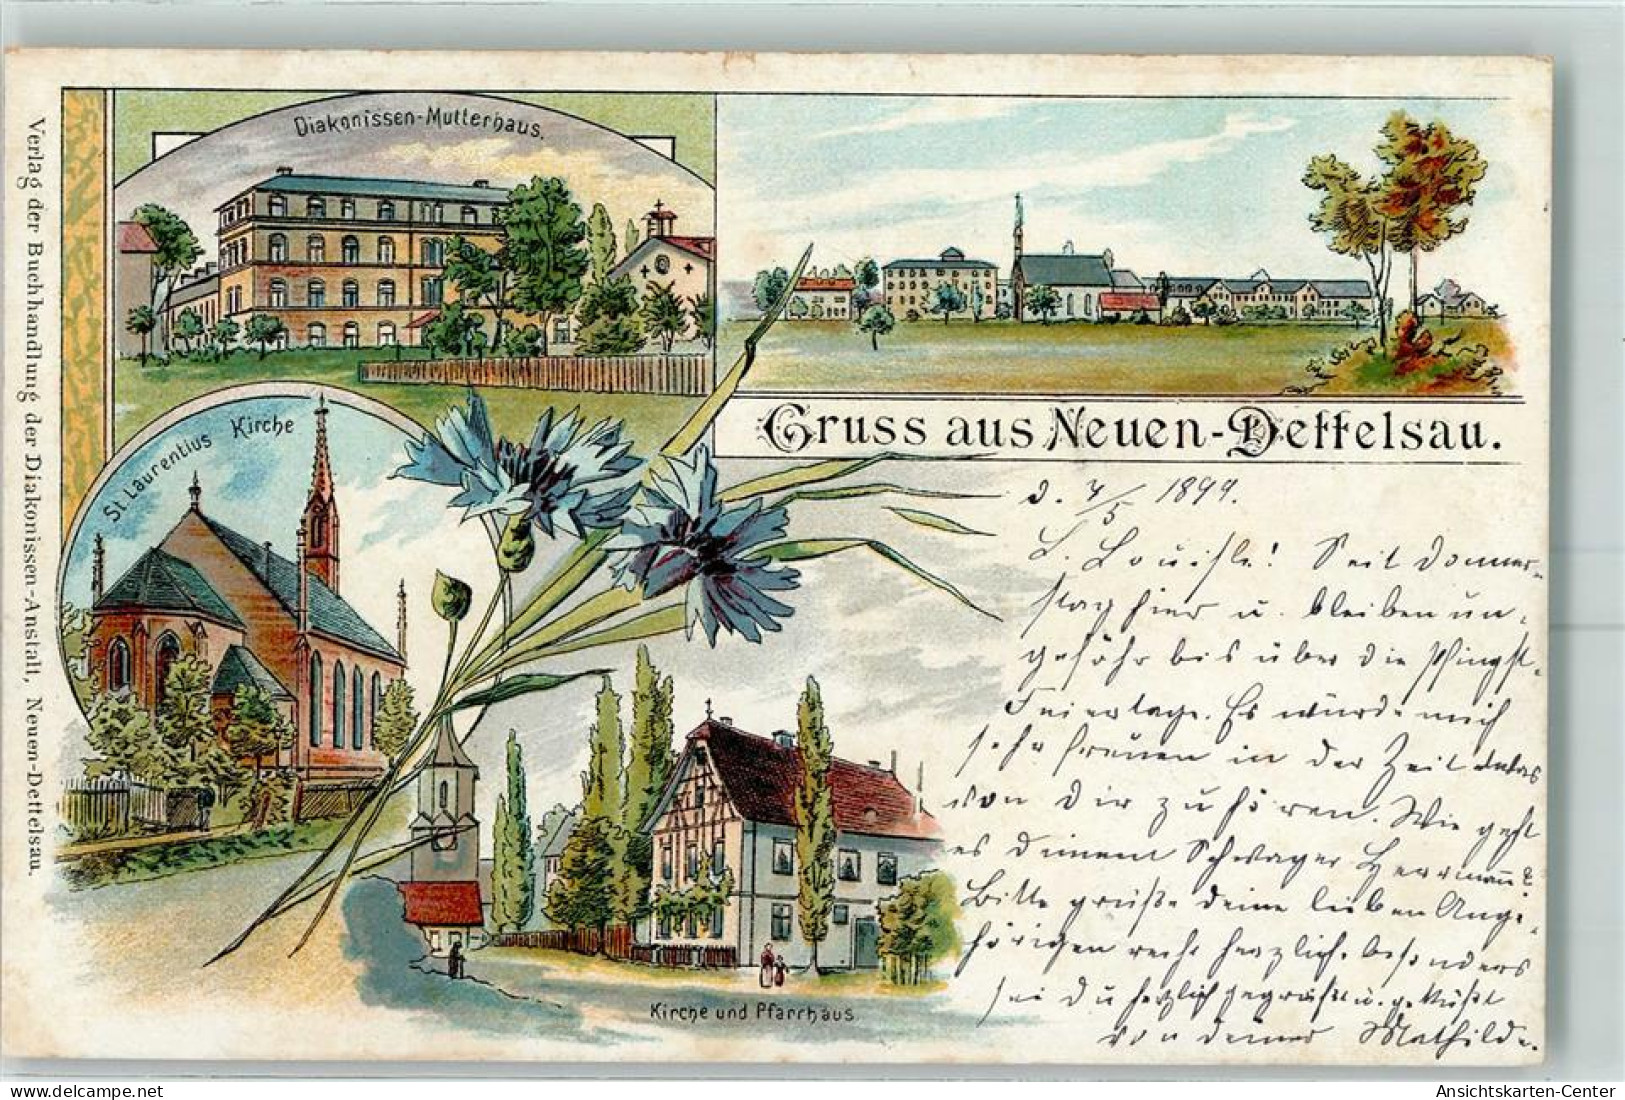 Diakonissen-Mutterhaus.
St. Laurentius Kirche
Verlag der Buchhandlung der Diakonissen-Anstalt, Neuen-Dettelsau.
Gruss aus Neuen-Dettelsau.
d. 4/5 1899.
L. Louisle! Seit Donner-
stag hier u. bleiben un-
gefähr bis über die Pfingst-
Feiertage. Es würde mich
sehr freuen in der Zeit etwas
von Dir zu hören. Wie geht
es deinem Schwager Herrmann?
Bitte grüße deine lieben Ange-
hörigen recht herzlich, besonders
sei Du herzlich gegrüßt u. geküßt
von deiner Mathilde.
Kirche und Pfarrhaus
Ansichtskarten-Center